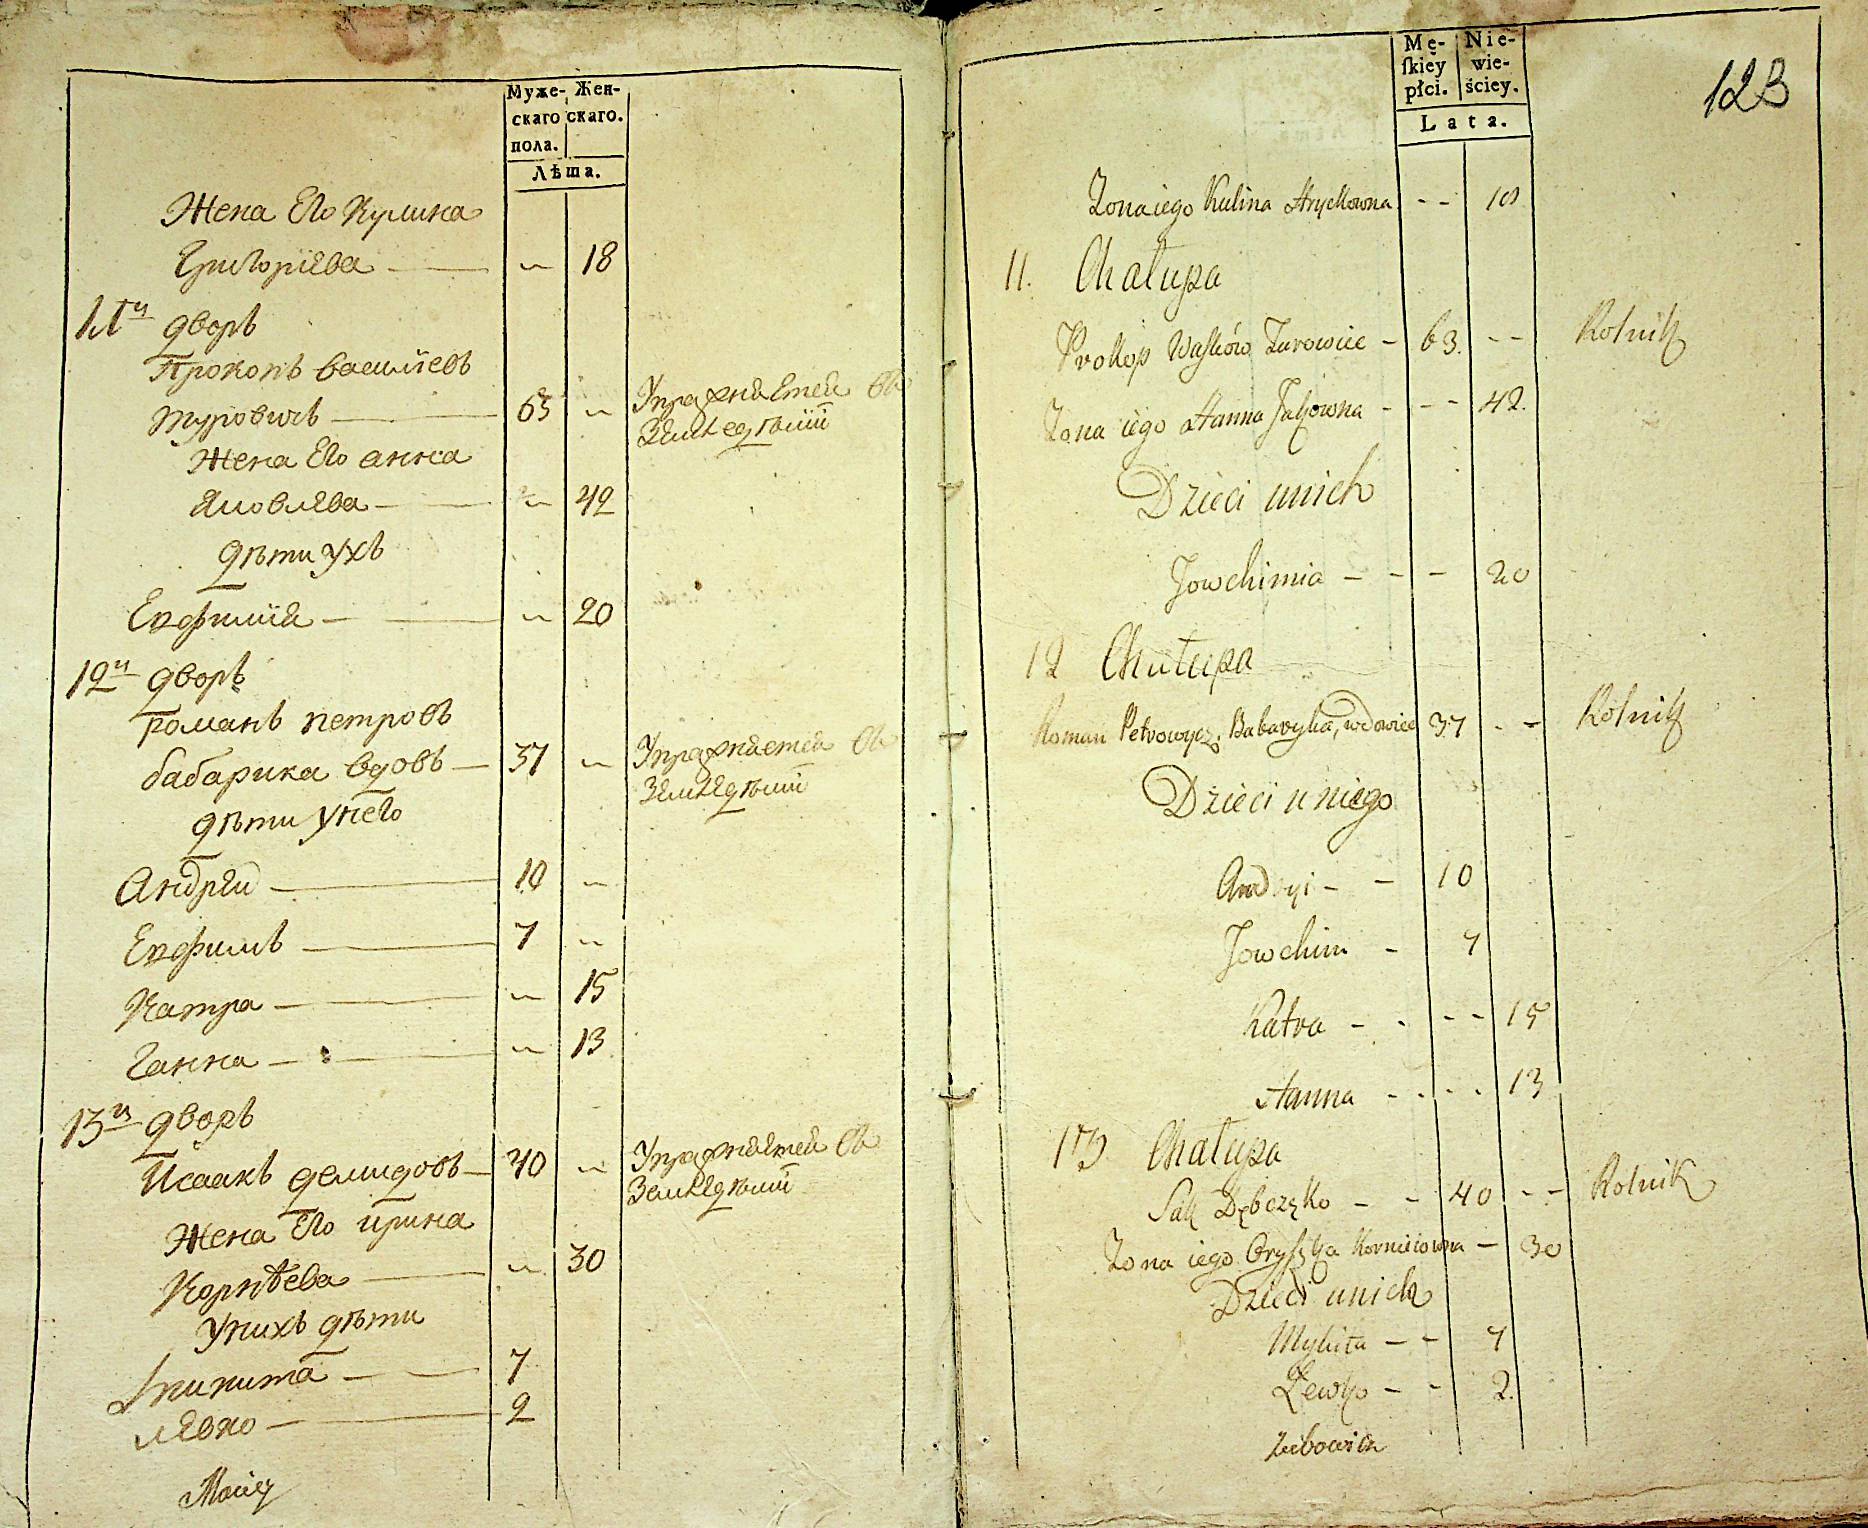 Муже- Жен-
скаго скаго.
пола.
Лѣта.
Жена Его Кулина
Григоріева — „ 18
11й дворъ
Прокопъ васильевъ
туровичъ — 63 „ Упражняется въ
Земледѣліи
Жена Его анна
Яковлева — „ 42
дѣти ухъ
Евфимія — „ 20
12й дворъ
романъ петровъ
бабарика вдовъ — 37 „ Упражняется въ
Земледѣліи
дѣти унего
Андрей — 10 „
Евфимъ — 7 „
Катра — „ 15
Ганна — „ 13
13й дворъ
Исаакъ демидовъ — 40 „ Упражняется въ
Земледѣліи
Жена Его ирина
Корнѣева — „ 30
Унихъ дѣти
Микита — 7
левко — 2
Mę- Nie-
ſkiey wie-
płci. ściey.
Lata.
123
Zona iego Kulina Hryckowna - - 18
11. Chałupa
Prokop Waſków Turowiec - 63. - - Rolnik
Zona iego Hanna Jakowna - - - 42.
Dzieci unich
Jowchimia - - - 20
12 Chałupa
Roman Petrowycz Babaryka, wdowiec 37 - - Rolnik
Dzieci u niego
Andryi - - 10
Jowchim - 7
Katra - - - - 15
Hanna - - - - 13
13 Chałupa
Sak - - 40 - - Rolnik
Zona iego Oryſzka Korniiowna - 30
Dzieci unich
Mykita - - 7
Lewko - - 2.